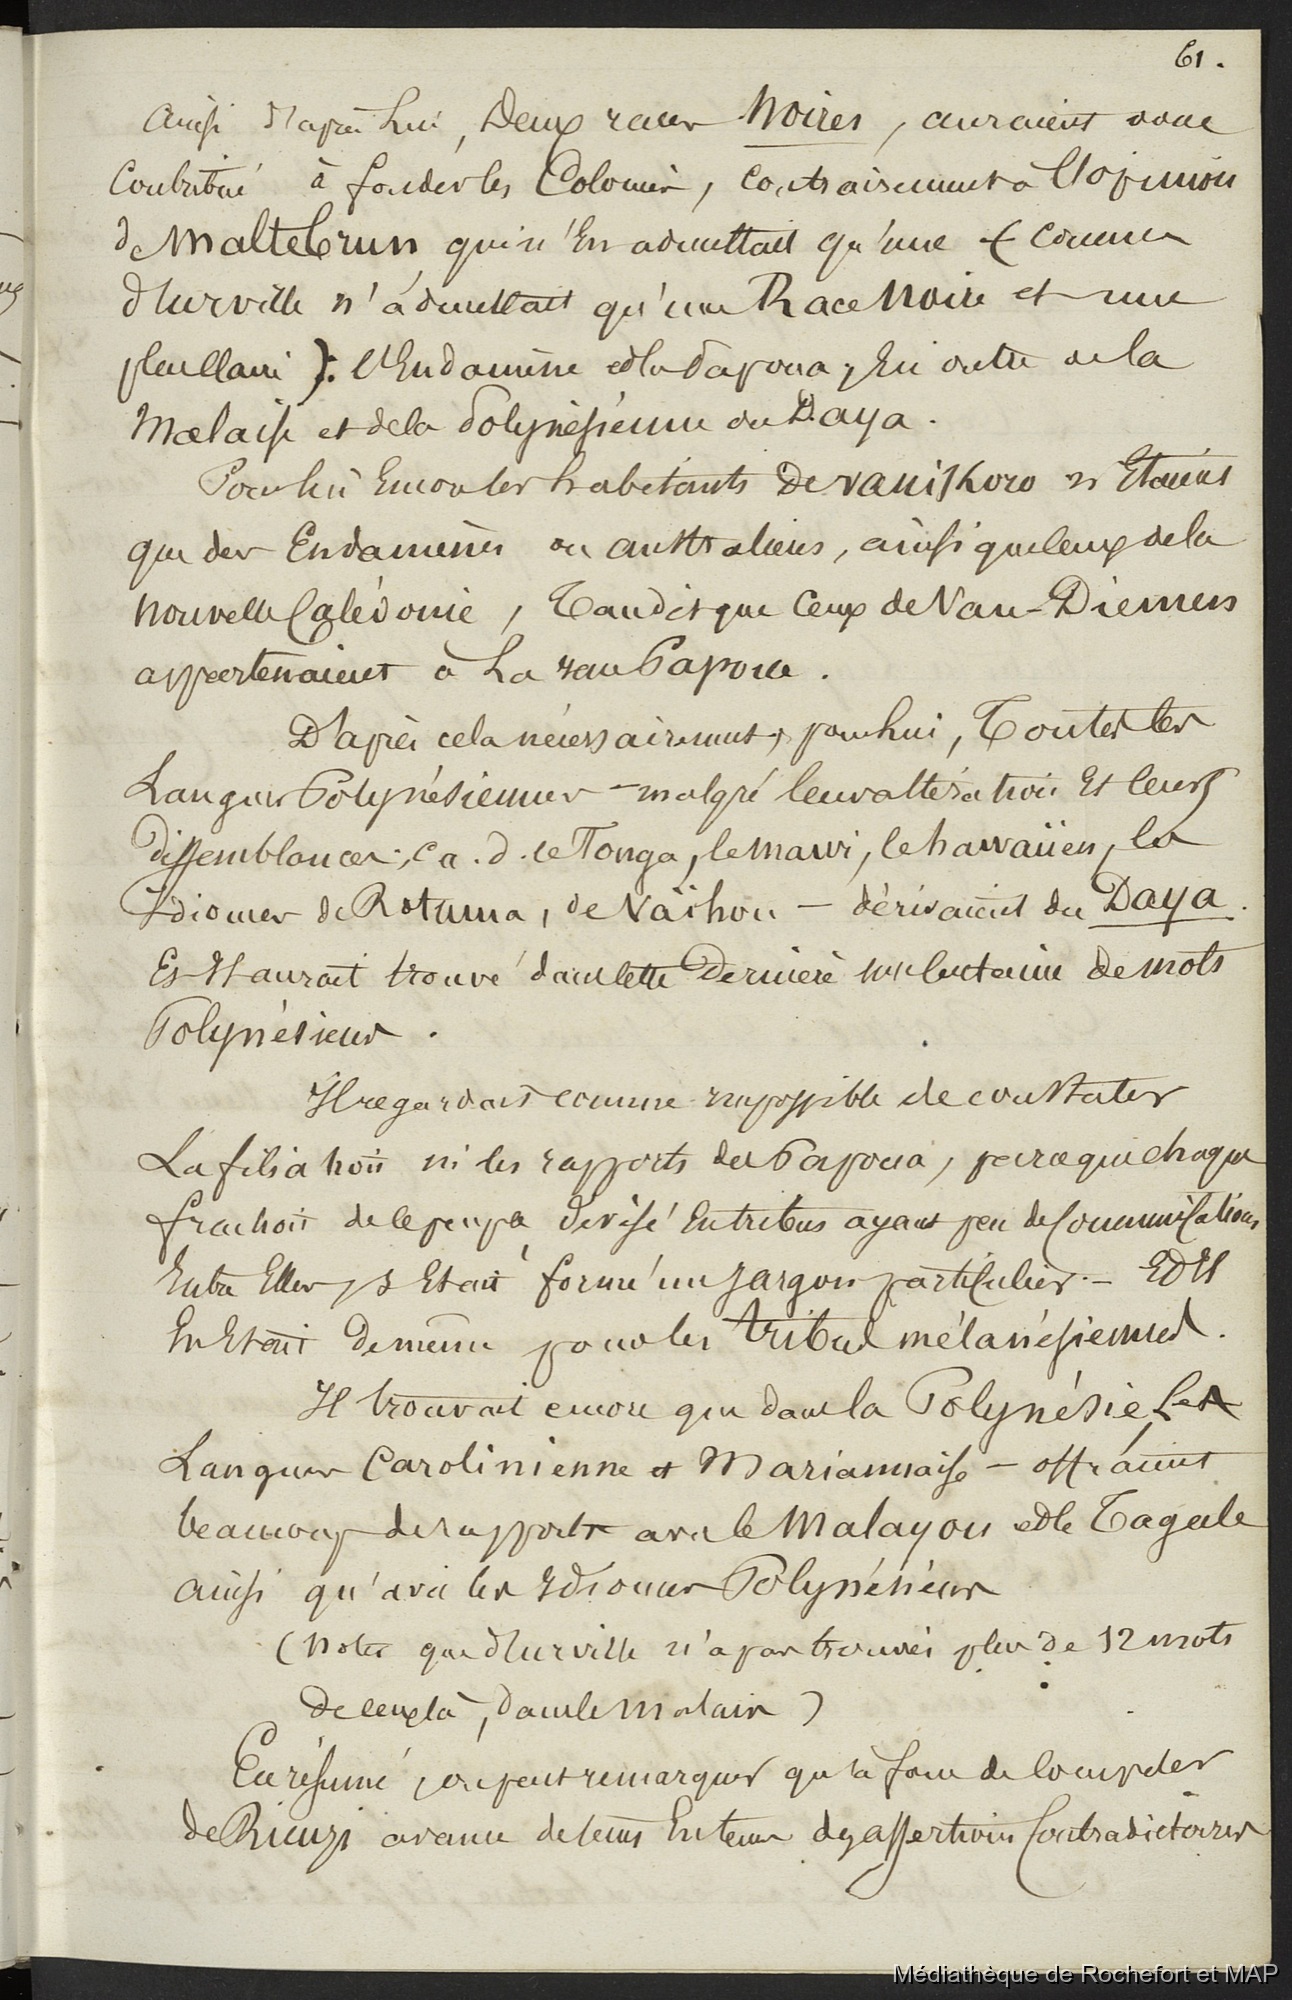 61.
Ainsi d'après lui, Deux races Noires, auraient donc
contribué à fonder les Colonies, contrairement à l'opinion
de Maltebrun qui n'en admettait qu'une (comme
d'Urville n'admettait qu'une Race Noire et une
): l'Endamène et la Papoua, En outre de la
Malaise et de la Polynésienne ou Daya.
Pour lui Encore les habitants De Vanikoro n'Etaient
que des Endamènes ou australiens, ainsi que ceux de la
Nouvelle Calédonie, Tandis que Ceux de Van-Diemens
appartenaient à La race Papoua.
D'après cela nécessairement, pour lui, Toutes les
Langues Polynésiennes - malgré leur altération Et leurs
dissemblances, c a. d. le Tonga, le mawi, le hawaiien, les
Idiomes de Rotuma, de Väihou - dérivaient du Daya.
Et Il aurait trouvé dans cette Dernière une centaine De mots
Polynésiens.
Il regardait comme impossible de constater
La filiation ni les rapports des Papoua, parce que chaque
fraction de ce peuple, divisé En tribus ayant peu de Communications
Entre Elles, s'Etait formé un jargon particulier. - Et Il
En Etait De même pour les tribus mélanésiennes.
Il trouvait encore que dans la Polynésie Les
Langues Carolinienne et Mariannaise - offraient
beaucoup de rapports avec le Malayou et le Tagale
ainsi qu'avec les Idiomes Polynésiens
(Noter que d'Urville n'a pas trouvés plus de 12 mots
De ceux là, dans le Malais)
En résumé, on peut remarquer qu'à force de
de Rienzi avance de tems En tems des assertions Contradictoires
Médiathèque de Rochefort et MAP